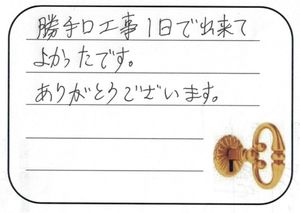 勝手口工事1日で出来て
よかったです。
ありがとうございます。